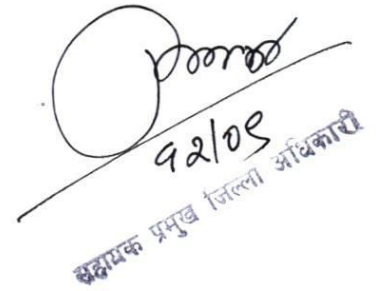 १२/०९
सहायक प्रमुख जिल्ला अधिकारी